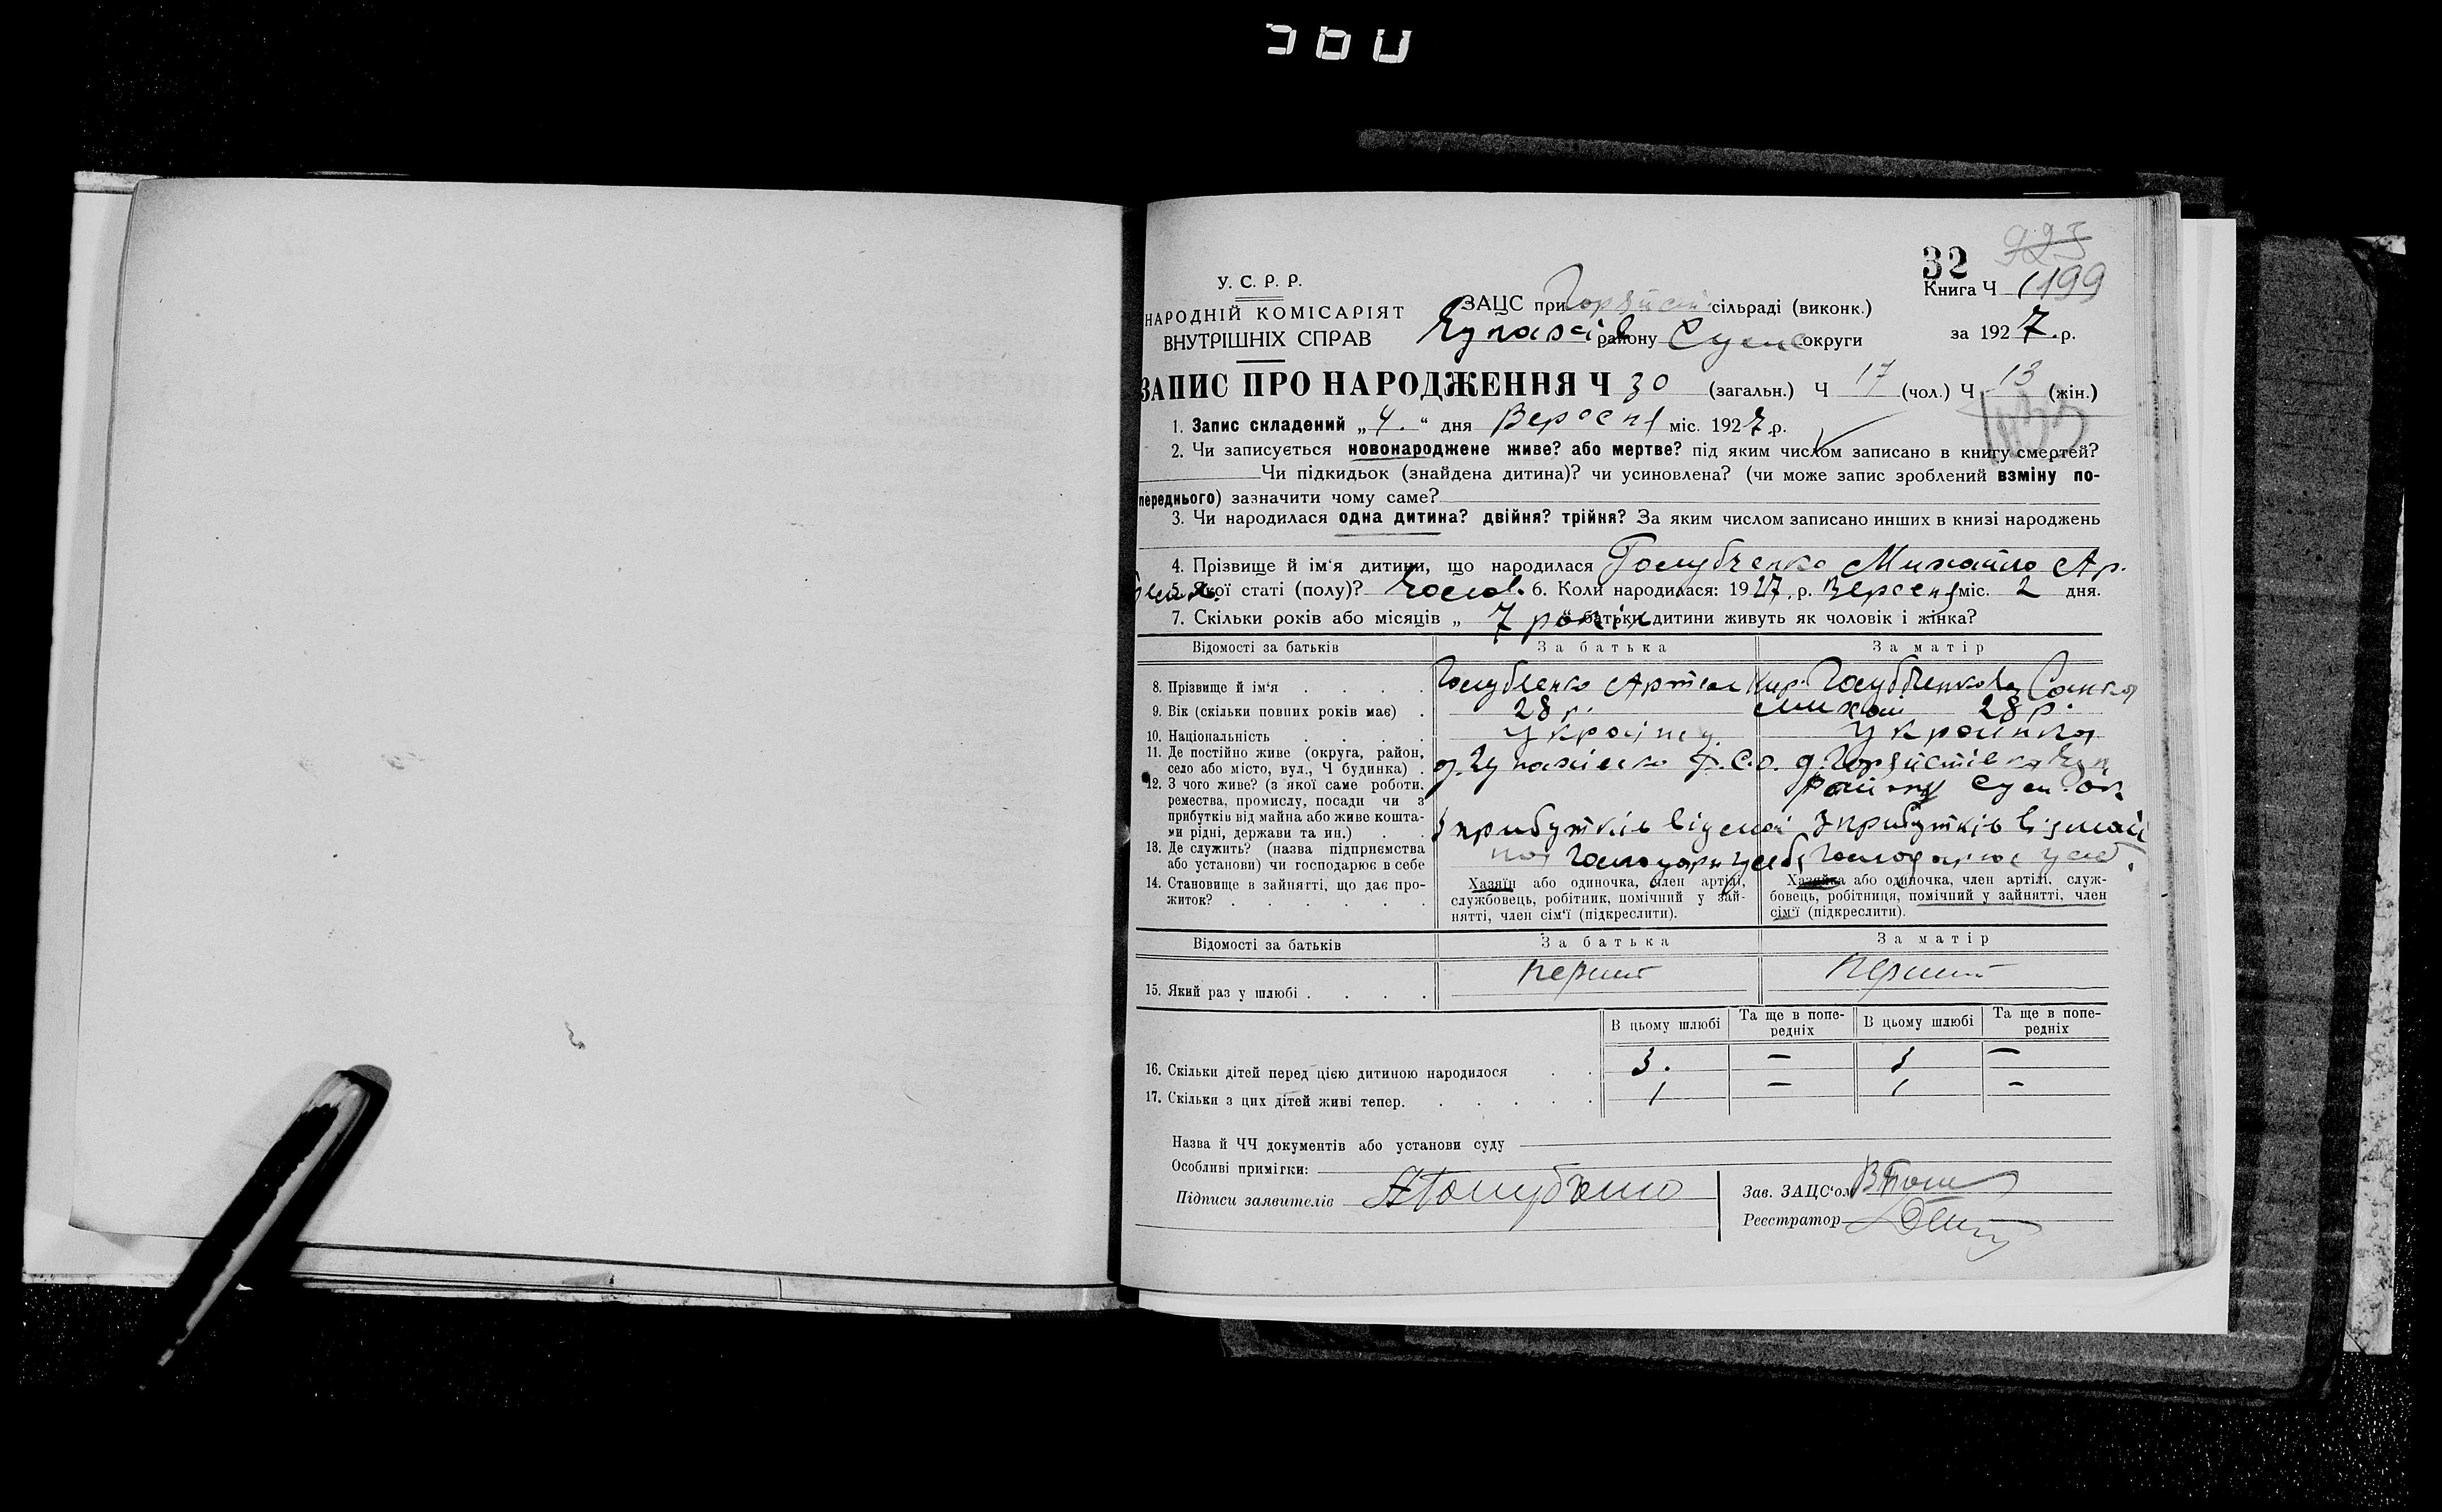 32
923
Книга Ч 1199
У. С. Р. Р.
НАРОДНІЙ КОМІСАРІЯТ
ВНУТРІШНІХ СПРАВ
ЗАЦС при сільраді (виконк.)
району Сумс округи
за 1927 р.
ЗАПИС ПРО НАРОДЖЕННЯ Ч 30 (загальн.) Ч 17 (чол.) Ч 13 (жін.)
1. Запис складений „4.“ дня Вересня міс. 1927 р.
2. Чи записується новонароджене живе? або мертве? під яким числом записано в книгу смертей?
Чи підкидьок (знайдена дитина)? чи усиновлена? (чи може запис зроблений взміну по-
переднього) зазначити чому саме?
3. Чи народилася одна дитина? двійня? трійня? За яким числом записано инших в книзі народжень
4. Прізвище й ім‘я дитини, що народилася Голубченко Михайло Ар.
5. Якої статі (полу)? 6. Коли народилася: 1927 р. Вересня міс. 2 дня.
7. Скільки років або місяців „ 7 років “ батьки дитини живуть як чоловік і жінка?
Відомості за батьків За батька За матір
8. Прізвище й ім‘я Голубченко Артем Кир. Голубченкова
9. Вік (скільки повних років має) 28 р. 28 р.
10. Національність Українец Українка
11. Де постійно живе (округа, район,
село або місто, вул., Ч будинка)
району Сум. Ок
12. З чого живе? (з якої саме роботи,
ремества, промислу, посади чи з
прибутків від майна або живе кошта-
ми рідні, держави та ин.) З прибутків від май З прибутків від май
13. Де служить? (назва підприємства
або установи) чи господарює в себе
14. Становище в зайнятті, що дає про-
житок?
Хазяїн або одиночка, член артілі,
службовець, робітник, помічний у зай-
нятті, член сім‘ї (підкреслити).
Хазяйка або одиночка, член артілі, служ-
бовець, робітниця, помічний у зайнятті, член
сім‘ї (підкреслити).
Відомості за батьків За батька За матір
15. Який раз у шлюбі перший перший
В цьому шлюбі Та ще в попе-
редніх В цьому шлюбі Та ще в попе-
редніх
16. Скільки дітей перед цією дитиною народилося 3. — 3 —
17. Скільки з цих дітей живі тепер. 1 — 1 —
Назва й ЧЧ документів або установи суду
Особливі примітки:
Підписи заявителів АГолубченко
Зав. ЗАЦС‘ом
Реєстратор